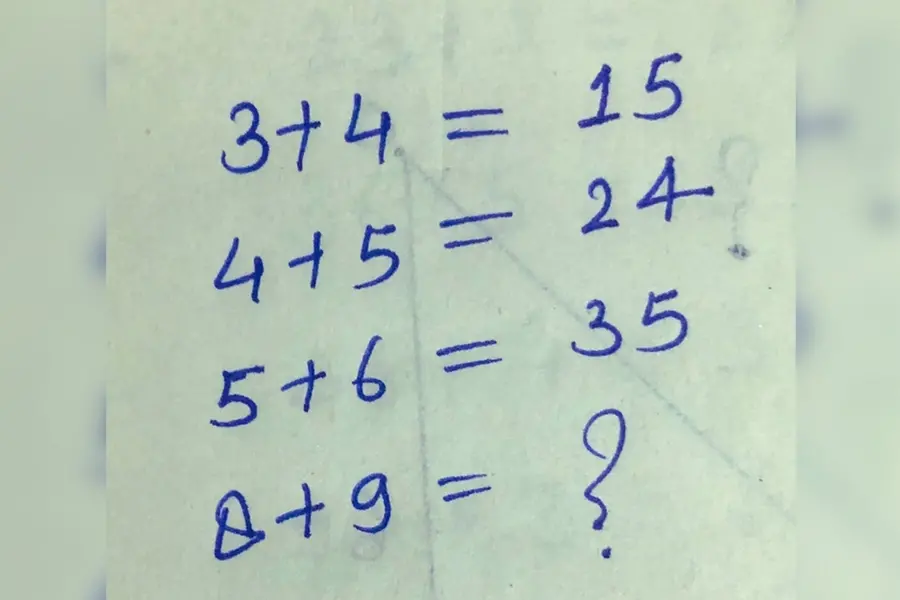 3+4 = 15
4+5 = 24
5+6 = 35
8+9 = ?